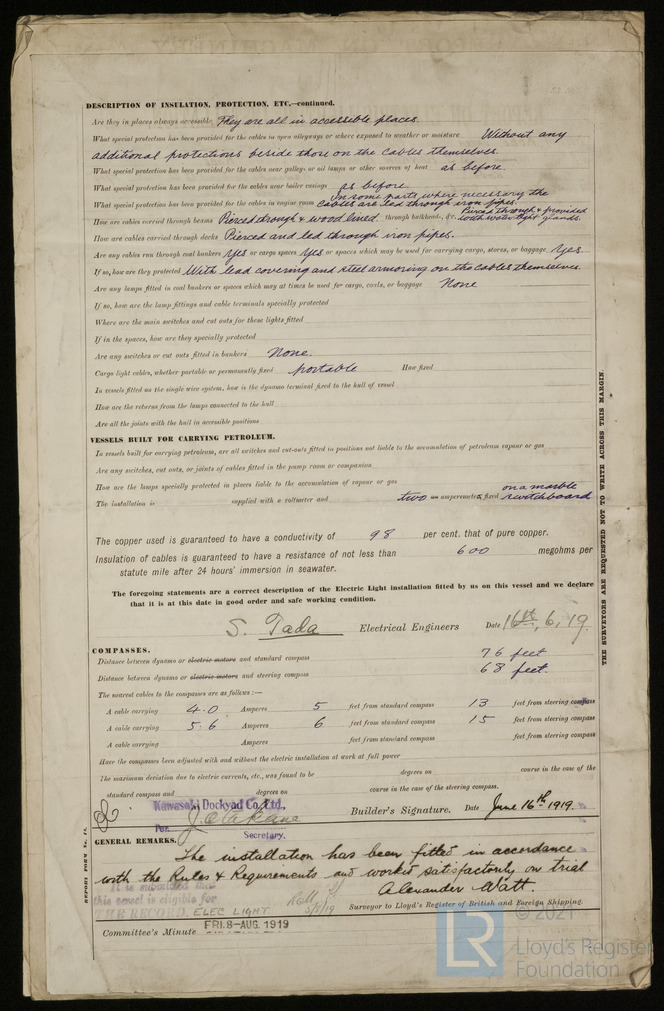 DESCRIPTION OF INSULATION, PROTECTION, ETC.—continued.
Are they in places always accessible They are all in accessible places.
What special protection has been provided for the cables in open alleyways or where exposed to weather or moisture Without any
additional protections beside those on the cables themselves.
What special protection has been provided for the cables near galleys or oil lamps or other sources of heat as before.
What special protection has been provided for the cables near boiler casings as before.
What special protection has been provided for the cables in engine room In some parts where necessary the
cables are led through iron pipes.
How are cables carried through beams Pierced through & wood lined through bulkheads, &c. Pierced through & provided
with water tight glands.
How are cables carried through decks Pierced and led through iron pipes.
Are any cables run through coal bunkers Yes or cargo spaces Yes or spaces which may be used for carrying cargo, stores, or baggage Yes.
If so, how are they protected With lead covering and steel armoring on the cables themselves.
Are any lamps fitted in coal bunkers or spaces which may at times be used for cargo, coals, or baggage None
If so, how are the lamp fittings and cable terminals specially protected
Where are the main switches and cut outs for these lights fitted
If in the spaces, how are they specially protected
Are any switches or cut outs fitted in bunkers None.
Cargo light cables, whether portable or permanently fixed portable How fixed
In vessels fitted on the single wire system, how is the dynamo terminal fixed to the hull of vessel
How are the returns from the lamps connected to the hull
Are all the joints with the hull in accessible positions
VESSELS BUILT FOR CARRYING PETROLEUM.
In vessels built for carrying petroleum, are all switches and cut-outs fitted in positions not liable to the accumulation of petroleum vapour or gas
Are any switches, cut outs, or joints of cables fitted in the pump room or companion
How are the lamps specially protected in places liable to the accumulation of vapour or gas
The installation is supplied with a voltmeter and two an amperemeters fixed on a marble
switchboard
The copper used is guaranteed to have a conductivity of 98 per cent. that of pure copper.
Insulation of cables is guaranteed to have a resistance of not less than 600 megohms per
statute mile after 24 hours' immersion in seawater.
The foregoing statements are a correct description of the Electric Light installation fitted by us on this vessel and we declare
that it is at this date in good order and safe working condition.
S. Tada Electrical Engineers Date 16th, 6, 19.
COMPASSES.
Distance between dynamo or electric motors and standard compass 76 feet
Distance between dynamo or electric motors and steering compass 68 feet.
The nearest cables to the compasses are as follows:—
A cable carrying 4.0 Amperes 5 feet from standard compass 13 feet from steering compass
A cable carrying 5.6 Amperes 6 feet from standard compass 15 feet from steering compass
A cable carrying Amperes feet from standard compass feet from steering compass
Have the compasses been adjusted with and without the electric installation at work at full power
The maximum deviation due to electric currents, etc., was found to be degrees on course in the case of the
standard compass and degrees on course in the case of the steering compass.
Kawasaki Dockyad Co. Ltd.,
Per Builder's Signature. Date June 16th 1919.
Secretary.
GENERAL REMARKS.
The installation has been fitted in accordance
with the Rules & Requirements and worked satisfactorily on trial
Alexander Watt.
It is submitted that
this vessel is eligible for
THE RECORD. ELEC LIGHT 5/8/19
Surveyor to Lloyd's Register of British and Foreign Shipping.
Committee's Minute FRI. 8-AUG. 1919
REPORT FORM No. 14.
THE SURVEYORS ARE REQUESTED NOT TO WRITE ACROSS THIS MARGIN.
LR © 2021
Lloyd's Register
Foundation